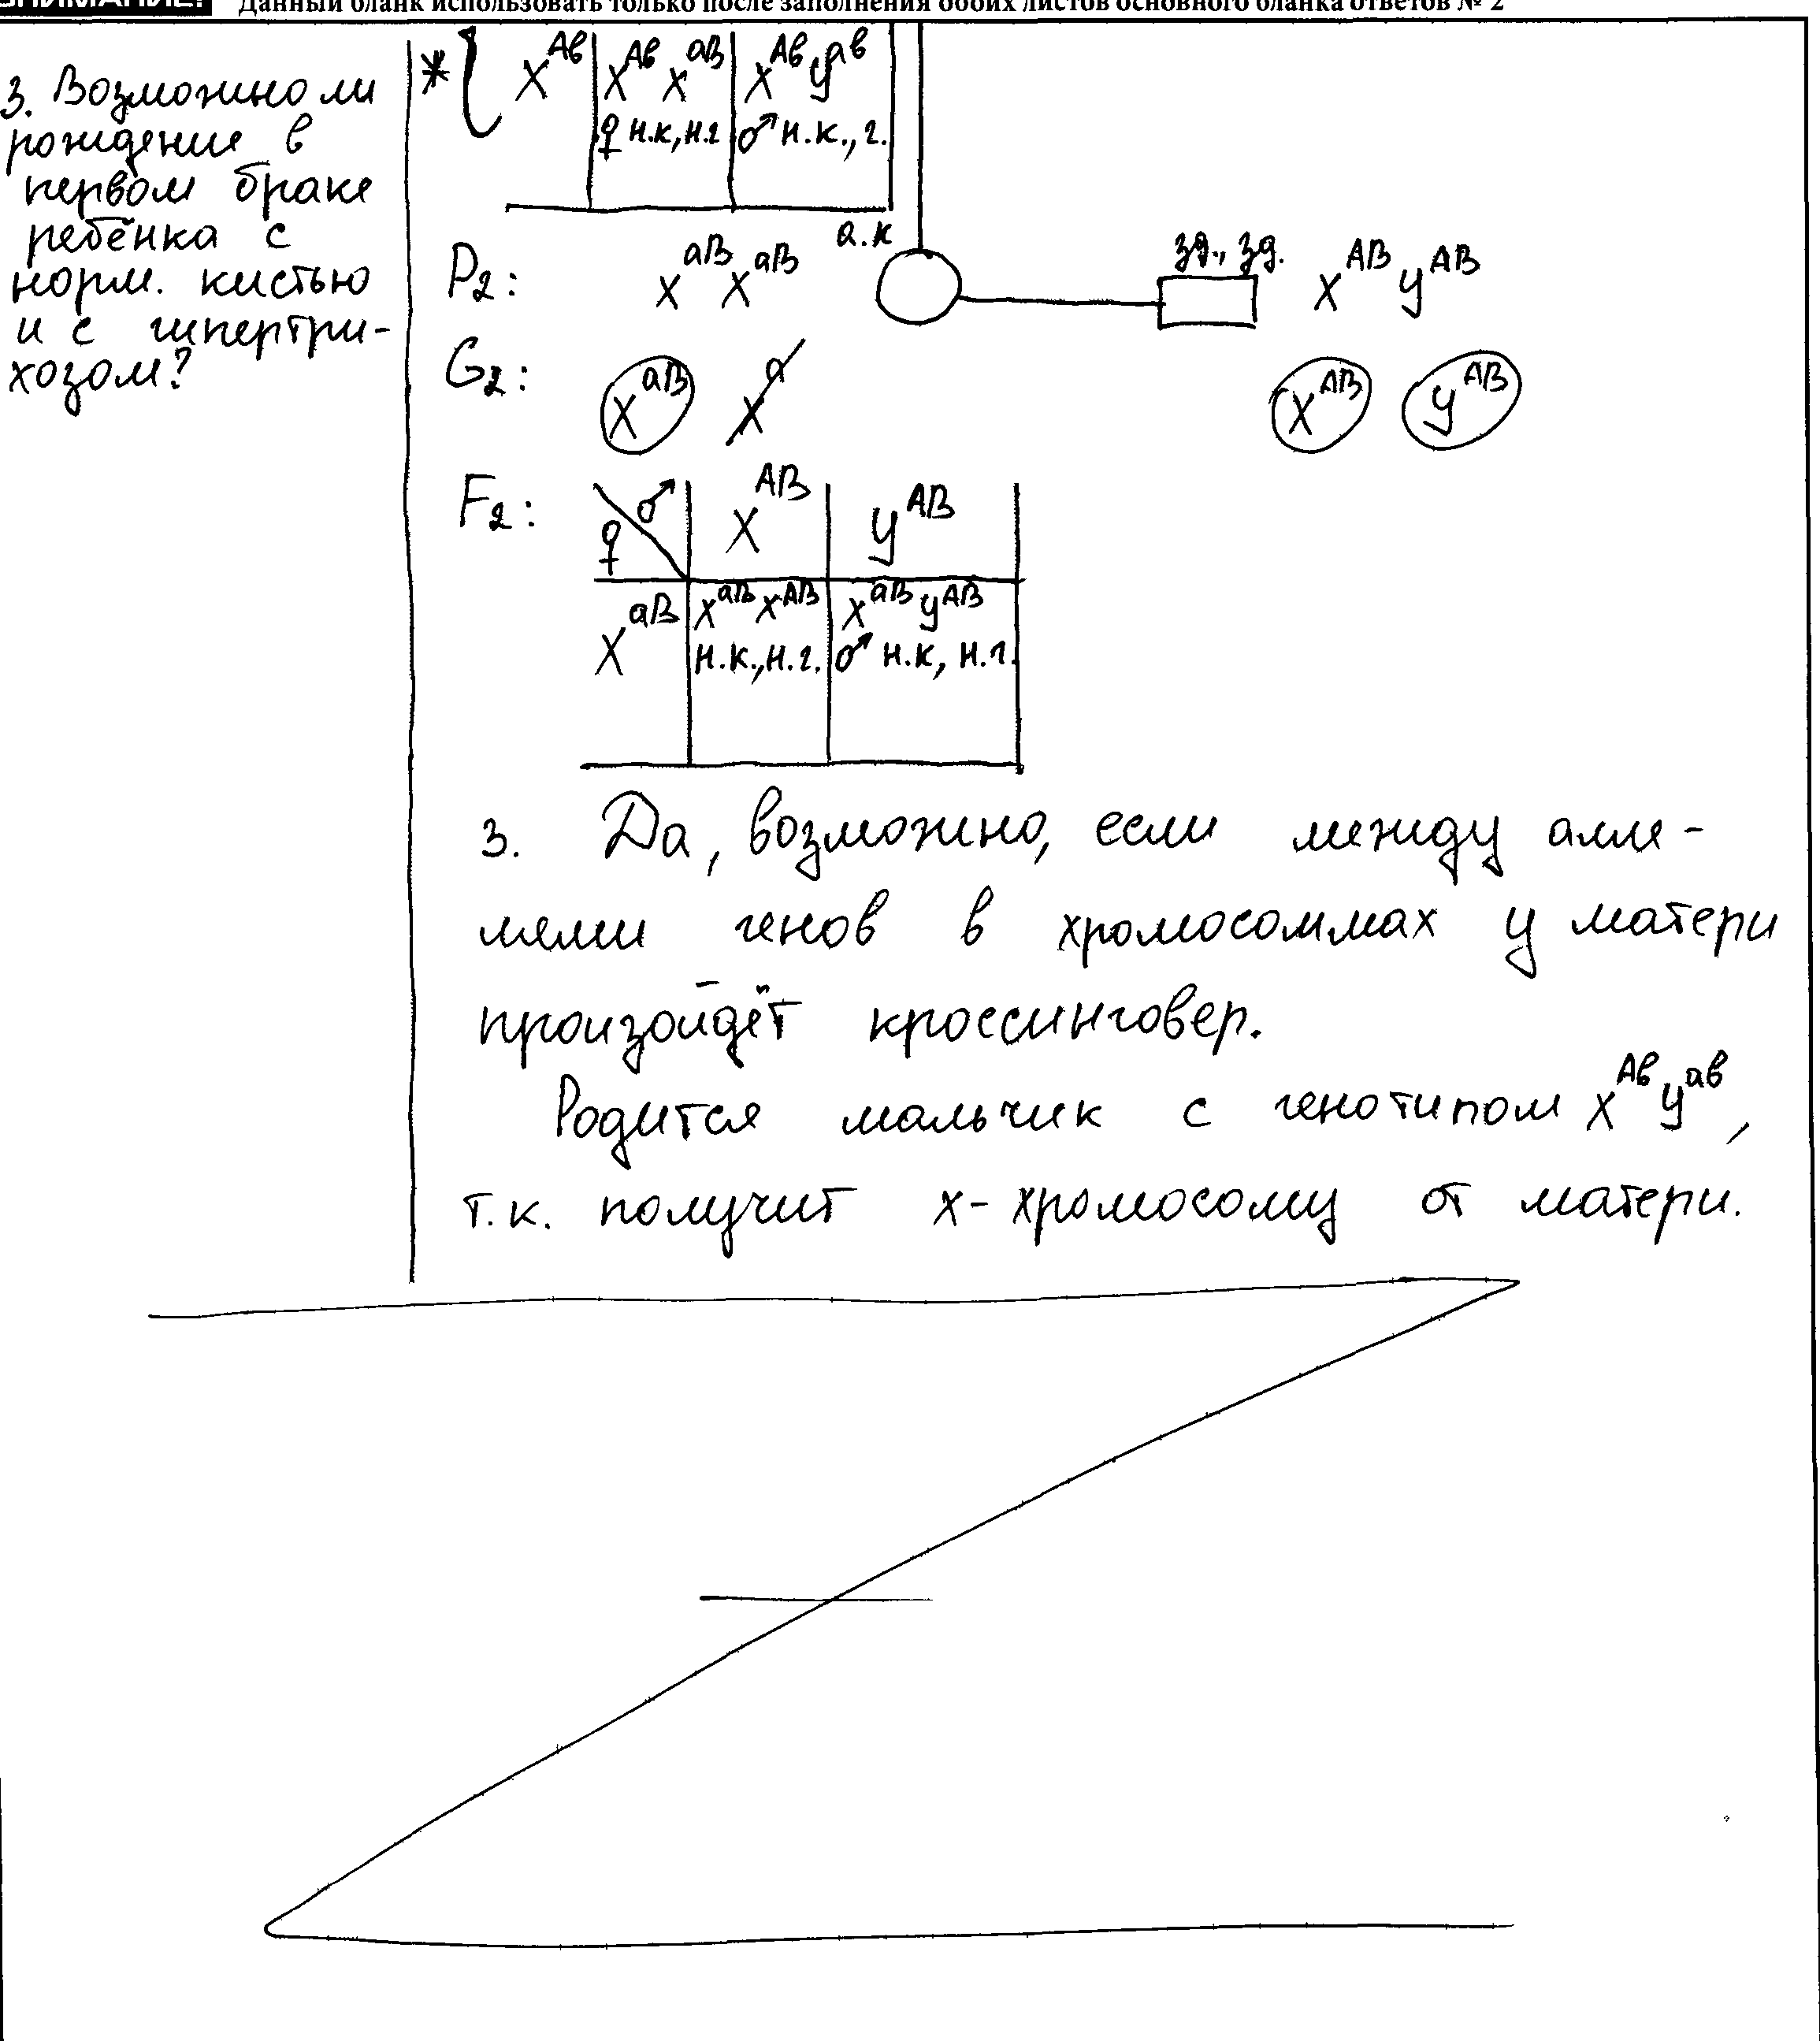 ВНИМАНИЕ! Данный бланк использовать только после заполнения обоих листов основного бланка ответов № 2
3. Возможно ли
рождение в
первом браке
ребёнка с
норм. кистью
и с гипертри-
хозом?
* { X^Aв X^Aв X^aB X^Aв У^aв
♀ н.к, н.г ♂ н.к., г.
P₂: X^aB X^aB а.к зд., зд. X^AB У^AB
G₂: X^aB X^a X^AB У^AB
F₂: ♀ ♂ X^AB У^AB
X^aB X^aB X^AB X^aB У^AB
н.к., н.г. ♂ н.к, н.г.
3. Да, возможно, если между алле-
лями генов в хромосоммах у матери
произойдёт кроссинговер.
Родится мальчик с генотипом X^Aв У^aв,
т.к. получит х-хромосому от матери.